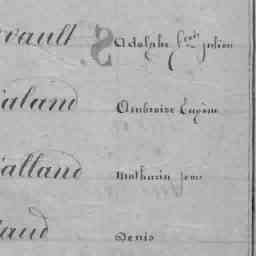 rault Adolphe Louis Julien
aland Ambroise Eugène
alland Mathurin Jean
aud Denis